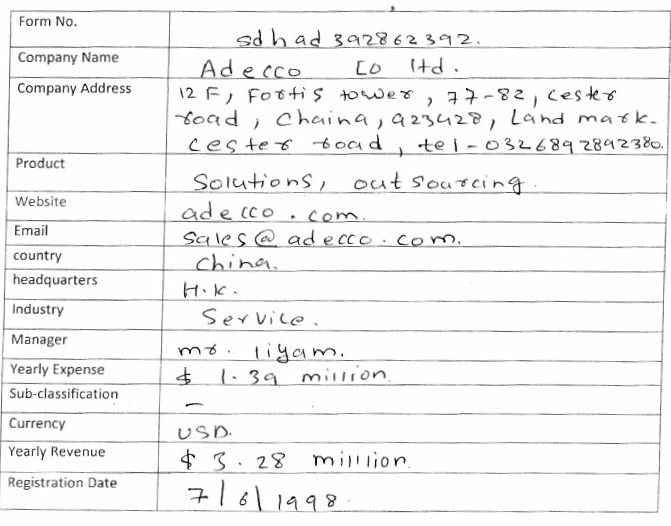 Form No. sdhad392862392.
Company Name Adecco Co ltd.
Company Address 12 F, Fortis tower, 77-82, cester
road, Chaina, 923428, Land mark-
cester road, tel-0326892892380.
Product Solutions, outsourcing.
Website adecco.com.
Email sales@adecco.com.
country China.
headquarters H.K.
Industry Service.
Manager mr. liyam.
Yearly Expense $ 1.39 million
Sub-classification –
Currency USD.
Yearly Revenue $ 3.28 milllion
Registration Date 7/6/1998.